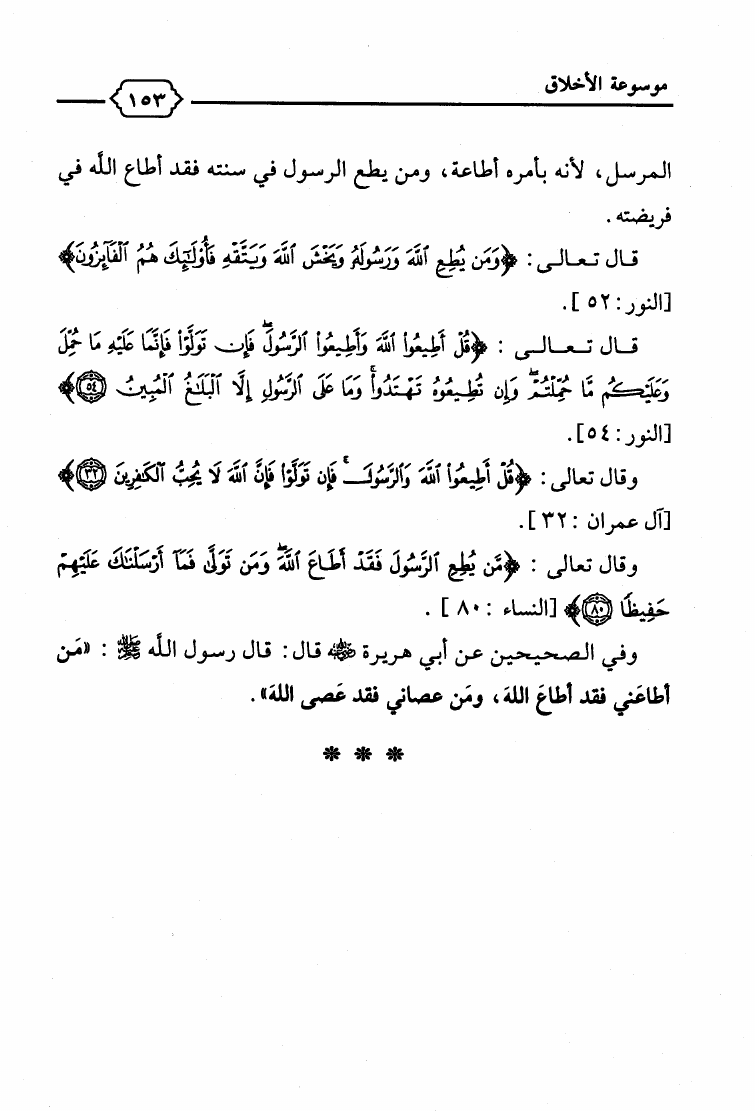 موسوعة الأخلاق
١٥٣
المرسل، لأنه بأمره أطاعة، ومن يطع الرسول في سنته فقد أطاع اللَّه في
فريضته.
قال تعالى: ﴿وَمَن يُطِعِ ٱللَّهَ وَرَسُولَهُۥ وَيَخْشَ ٱللَّهَ وَيَتَّقْهِ فَأُوْلَٰٓئِكَ هُمُ ٱلْفَآئِزُونَ﴾
[النور: ٥٢].
قال تعالى: ﴿قُلْ أَطِيعُوا۟ ٱللَّهَ وَأَطِيعُوا۟ ٱلرَّسُولَۖ فَإِن تَوَلَّوْا۟ فَإِنَّمَا عَلَيْهِ مَا حُمِّلَ
وَعَلَيْكُم مَّا حُمِّلْتُمْۖ وَإِن تُطِيعُوهُ تَهْتَدُوا۟ۚ وَمَا عَلَى ٱلرَّسُولِ إِلَّا ٱلْبَلَٰغُ ٱلْمُبِينُ ٥٤﴾
[النور: ٥٤].
وقال تعالى: ﴿قُلْ أَطِيعُوا۟ ٱللَّهَ وَٱلرَّسُولَۖ فَإِن تَوَلَّوْا۟ فَإِنَّ ٱللَّهَ لَا يُحِبُّ ٱلْكَٰفِرِينَ ٣٢﴾
[آل عمران: ٣٢].
وقال تعالى: ﴿مَّن يُطِعِ ٱلرَّسُولَ فَقَدْ أَطَاعَ ٱللَّهَۖ وَمَن تَوَلَّىٰ فَمَآ أَرْسَلْنَٰكَ عَلَيْهِمْ
حَفِيظًا ٨٠﴾ [النساء: ٨٠].
وفي الصحيحين عن أبي هريرة رضي الله عنه قال: قال رسول اللَّه ﷺ: «مَن
أطاعَني فقد أطاعَ اللهَ، ومَن عصاني فقد عَصى اللهَ».
* * *